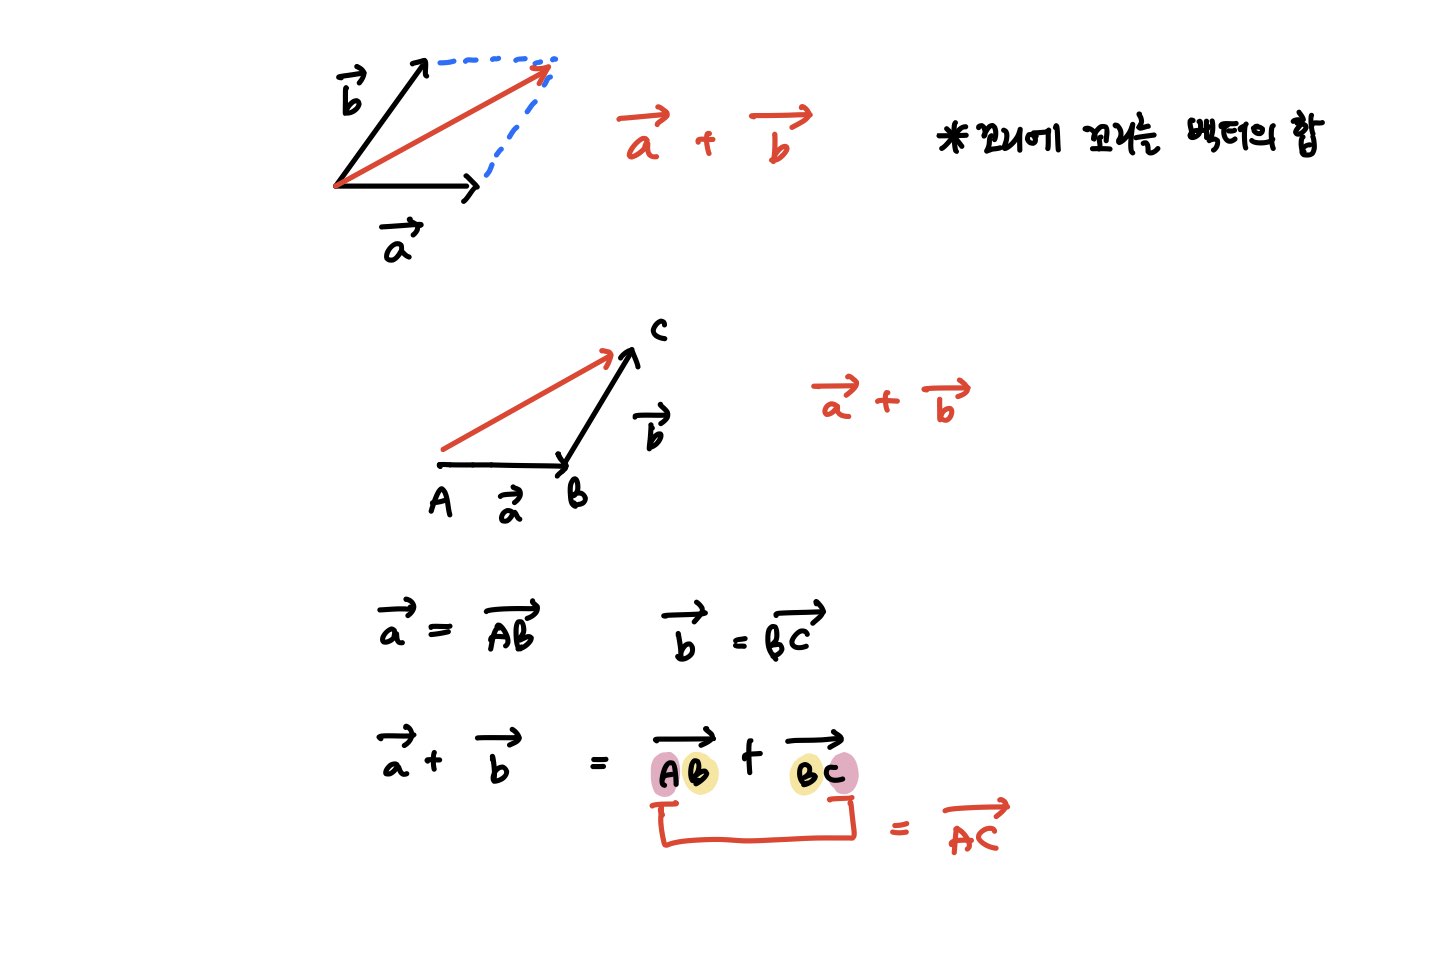 b⃗
a⃗ + b⃗
*꼬리에 꼬리는 벡터의 합
a⃗
C
b⃗
a⃗ + b⃗
A a⃗ B
a⃗ = A͞B⃗ b⃗ = B͞C⃗
a⃗ + b⃗ = A͞B⃗ + B͞C⃗
= A͞C⃗